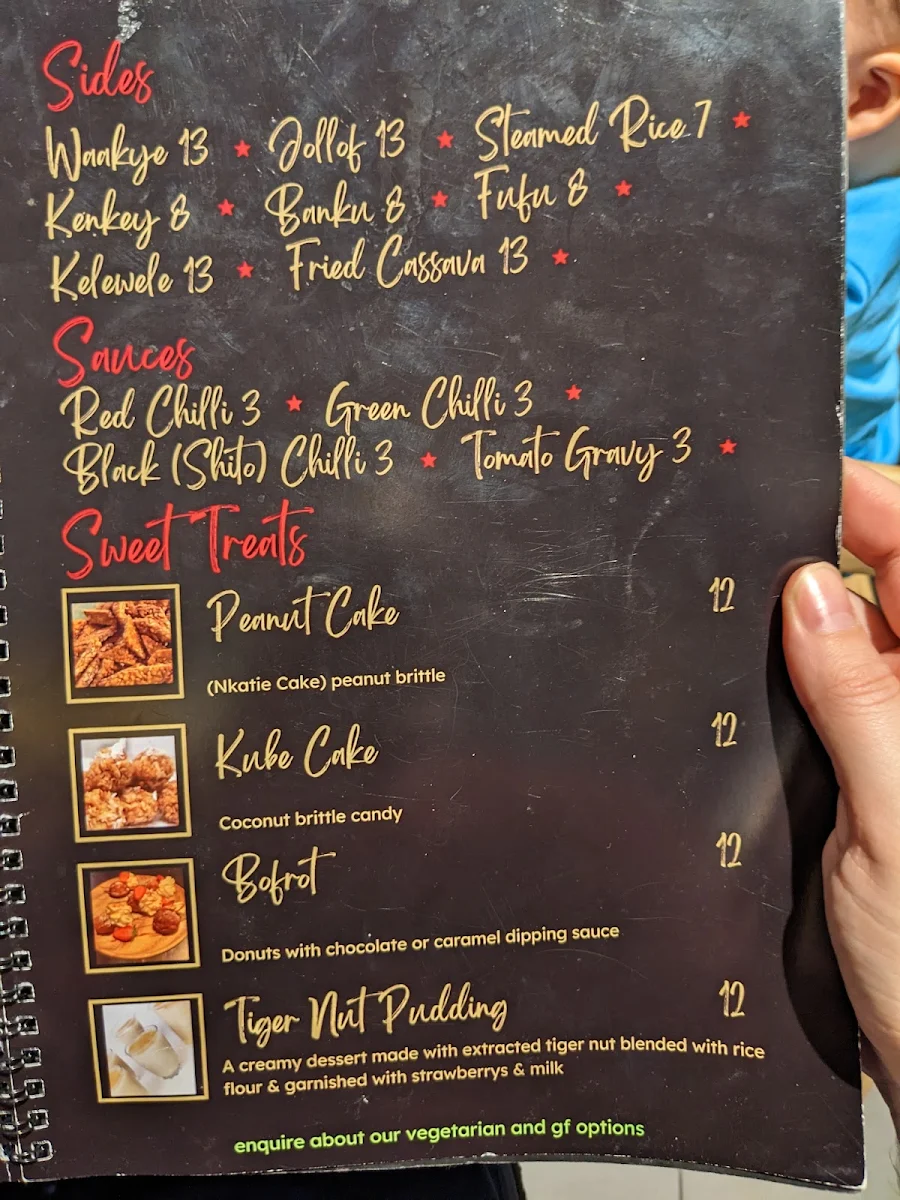 Sides
Waakye 13 ★ Jollof 13 ★ Steamed Rice 7 ★
Kenkey 8 ★ Banku 8 ★ Fufu 8 ★
Kelewele 13 ★ Fried Cassava 13 ★
Sauces
Red Chilli 3 ★ Green Chilli 3 ★
Black (Shito) Chilli 3 ★ Tomato Gravy 3 ★
Sweet Treats
Peanut Cake 12
(Nkatie Cake) peanut brittle
Kube Cake 12
Coconut brittle candy
Bofrot 12
Donuts with chocolate or caramel dipping sauce
Tiger Nut Pudding 12
A creamy dessert made with extracted tiger nut blended with rice
flour & garnished with strawberrys & milk
enquire about our vegetarian and gf options